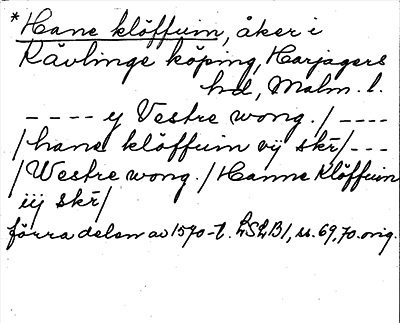 *Hane klöffuin, åker i
Kävlinge köping, Harjagers
hd, Malm. l.
---- y Vestre wong. / ----
/ hane klöffuin vij skr̄ / ---
/ Westre wong. / Hanne Klöffuin
iij skr̄ /
förra delen av 1570-t. LSLB1, s. 69, 70. orig.